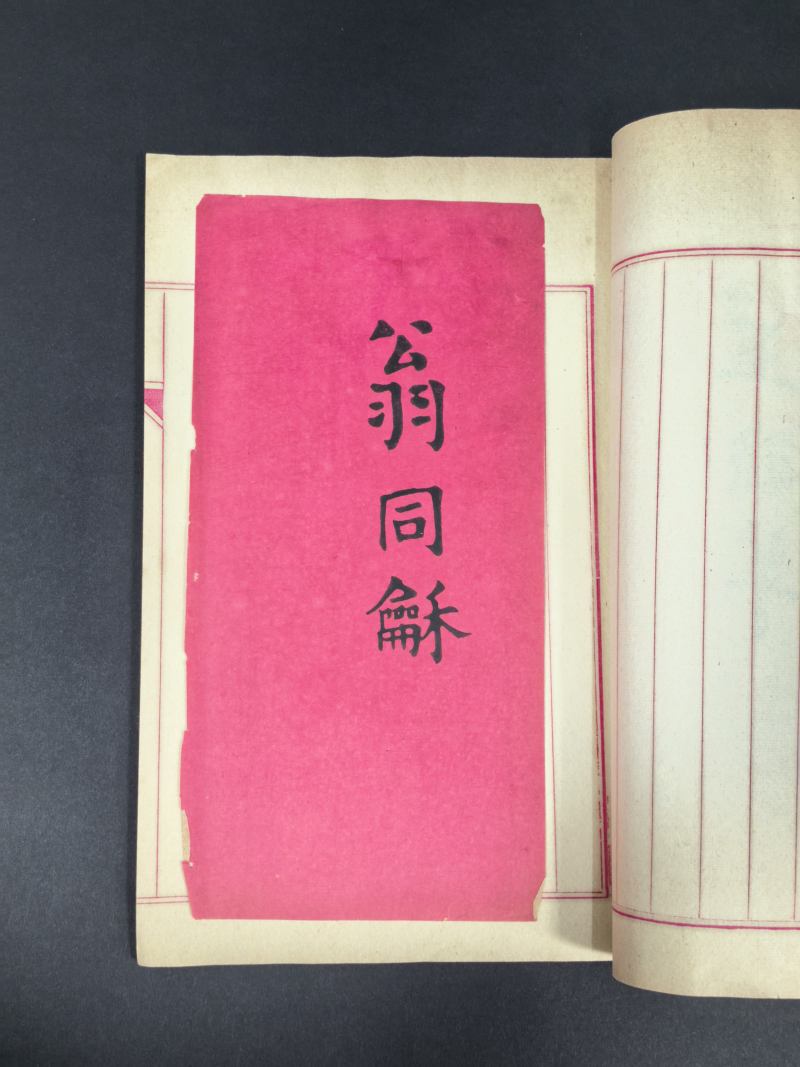 翁同龢